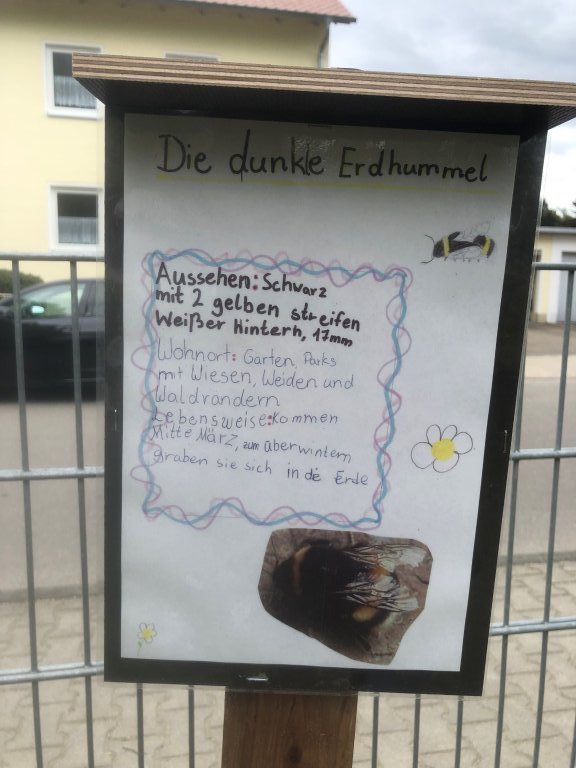 Die dunkle Erdhummel
Aussehen: Schwarz
mit 2 gelben streifen
Weißer Hintern, 17mm
Wohnort: Garten, Parks
mit Wiesen, Weiden und
Waldrändern
Lebensweise: kommen
Mitte März, zum überwintern
graben sie sich in die Erde